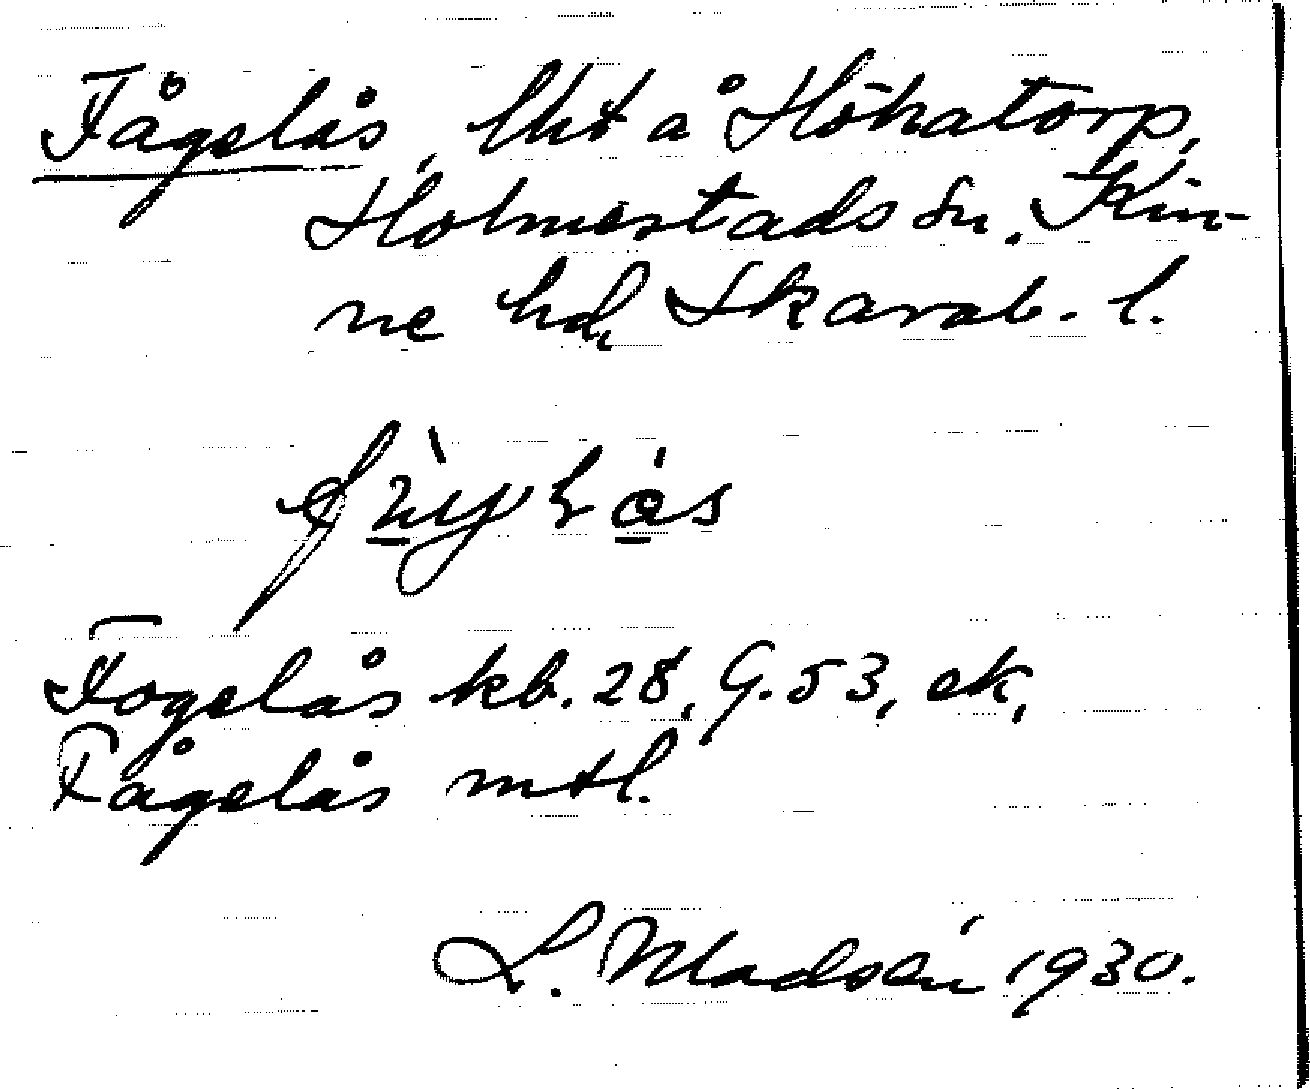 Fågelås, lht å Hökatorp,
Holmestads sn. Kin-
ne hd, Skarab. l.
Fogelås kb. 28, G. 53, ek,
Fågelås mtl.
L. Madsén 1930.